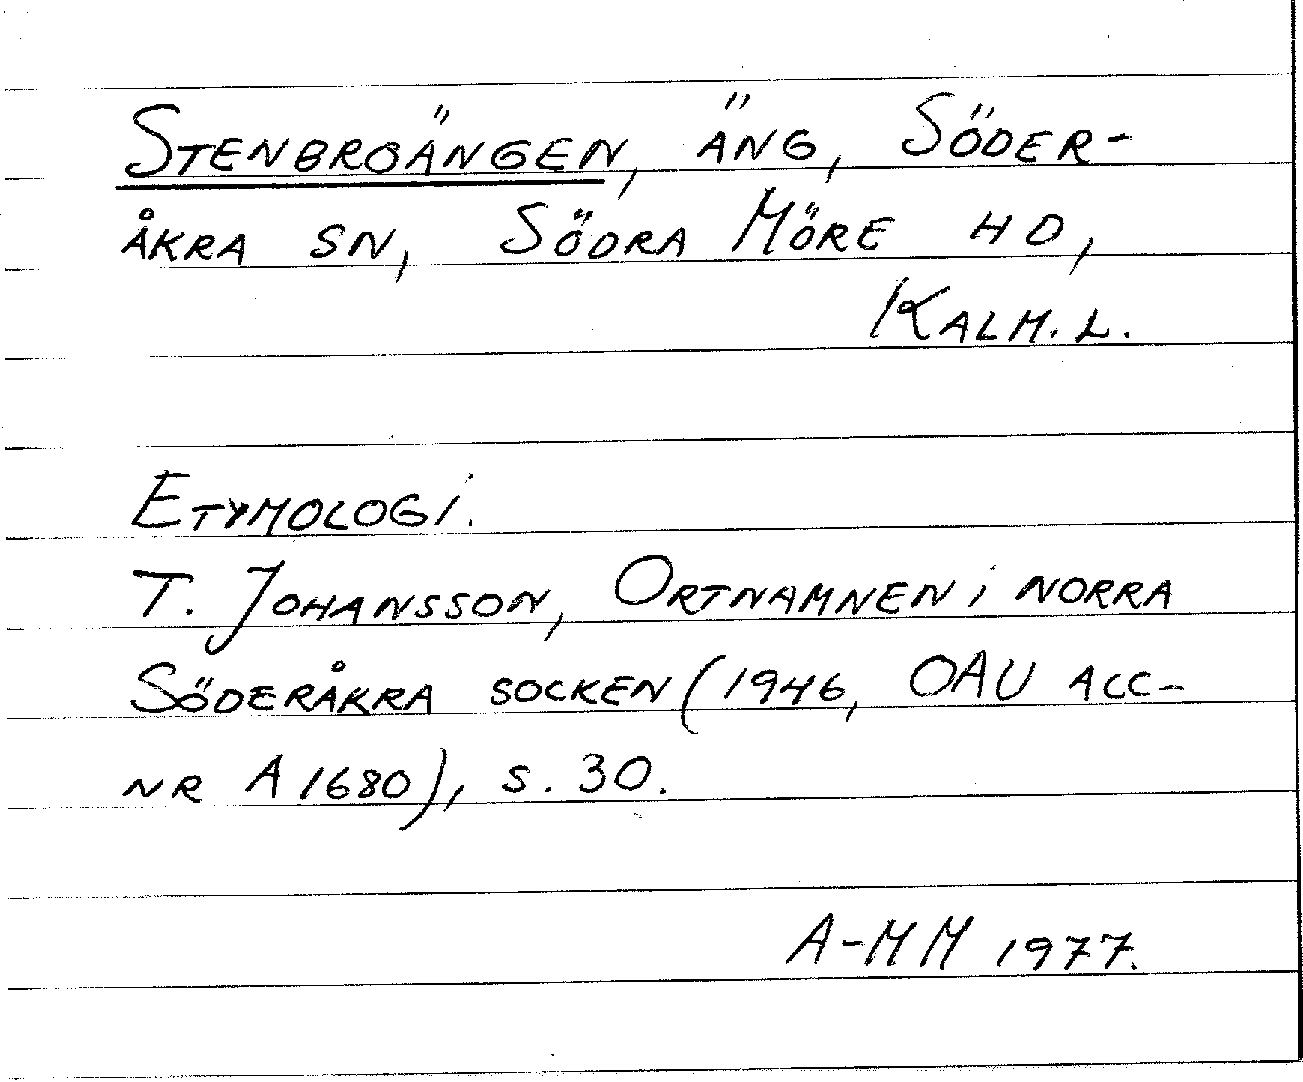 Stenbroängen, äng, Söder-
åkra sn, Södra Möre hd,
Kalm. L.
Etymologi.
T. Johansson, Ortnamnen i norra
Söderåkra socken (1946, OAU acc-
nr A 1680), s. 30.
A-MM 1977.